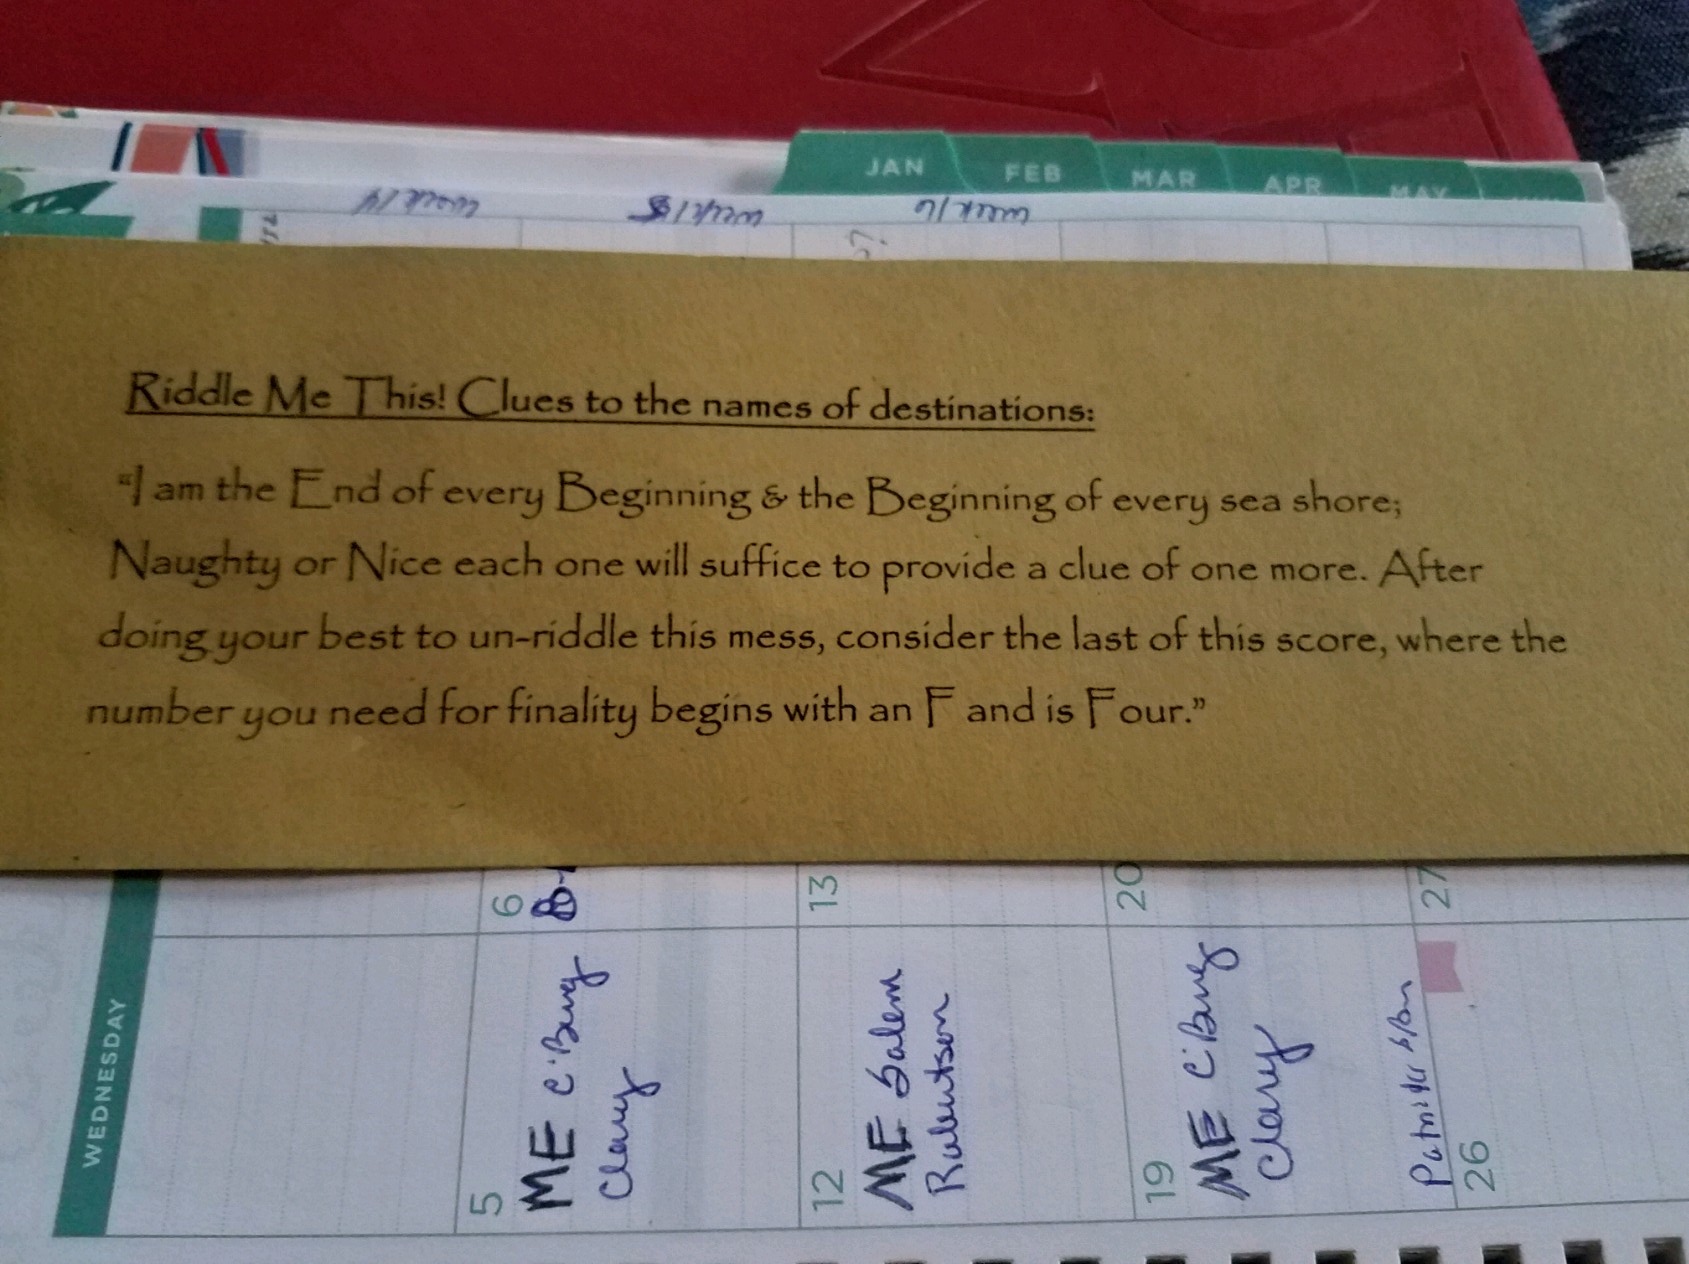 JAN FEB MAR APR MAY
week 14 week 15 week 16
Riddle Me This! Clues to the names of destinations:
“I am the End of every Beginning & the Beginning of every sea shore;
Naughty or Nice each one will suffice to provide a clue of one more. After
doing your best to un-riddle this mess, consider the last of this score, where the
number you need for finality begins with an F and is Four.”
WEDNESDAY
6
13
20
27
5
ME C'Burg
Clary
12
ME Salem
19
ME C'Burg
Clary
26